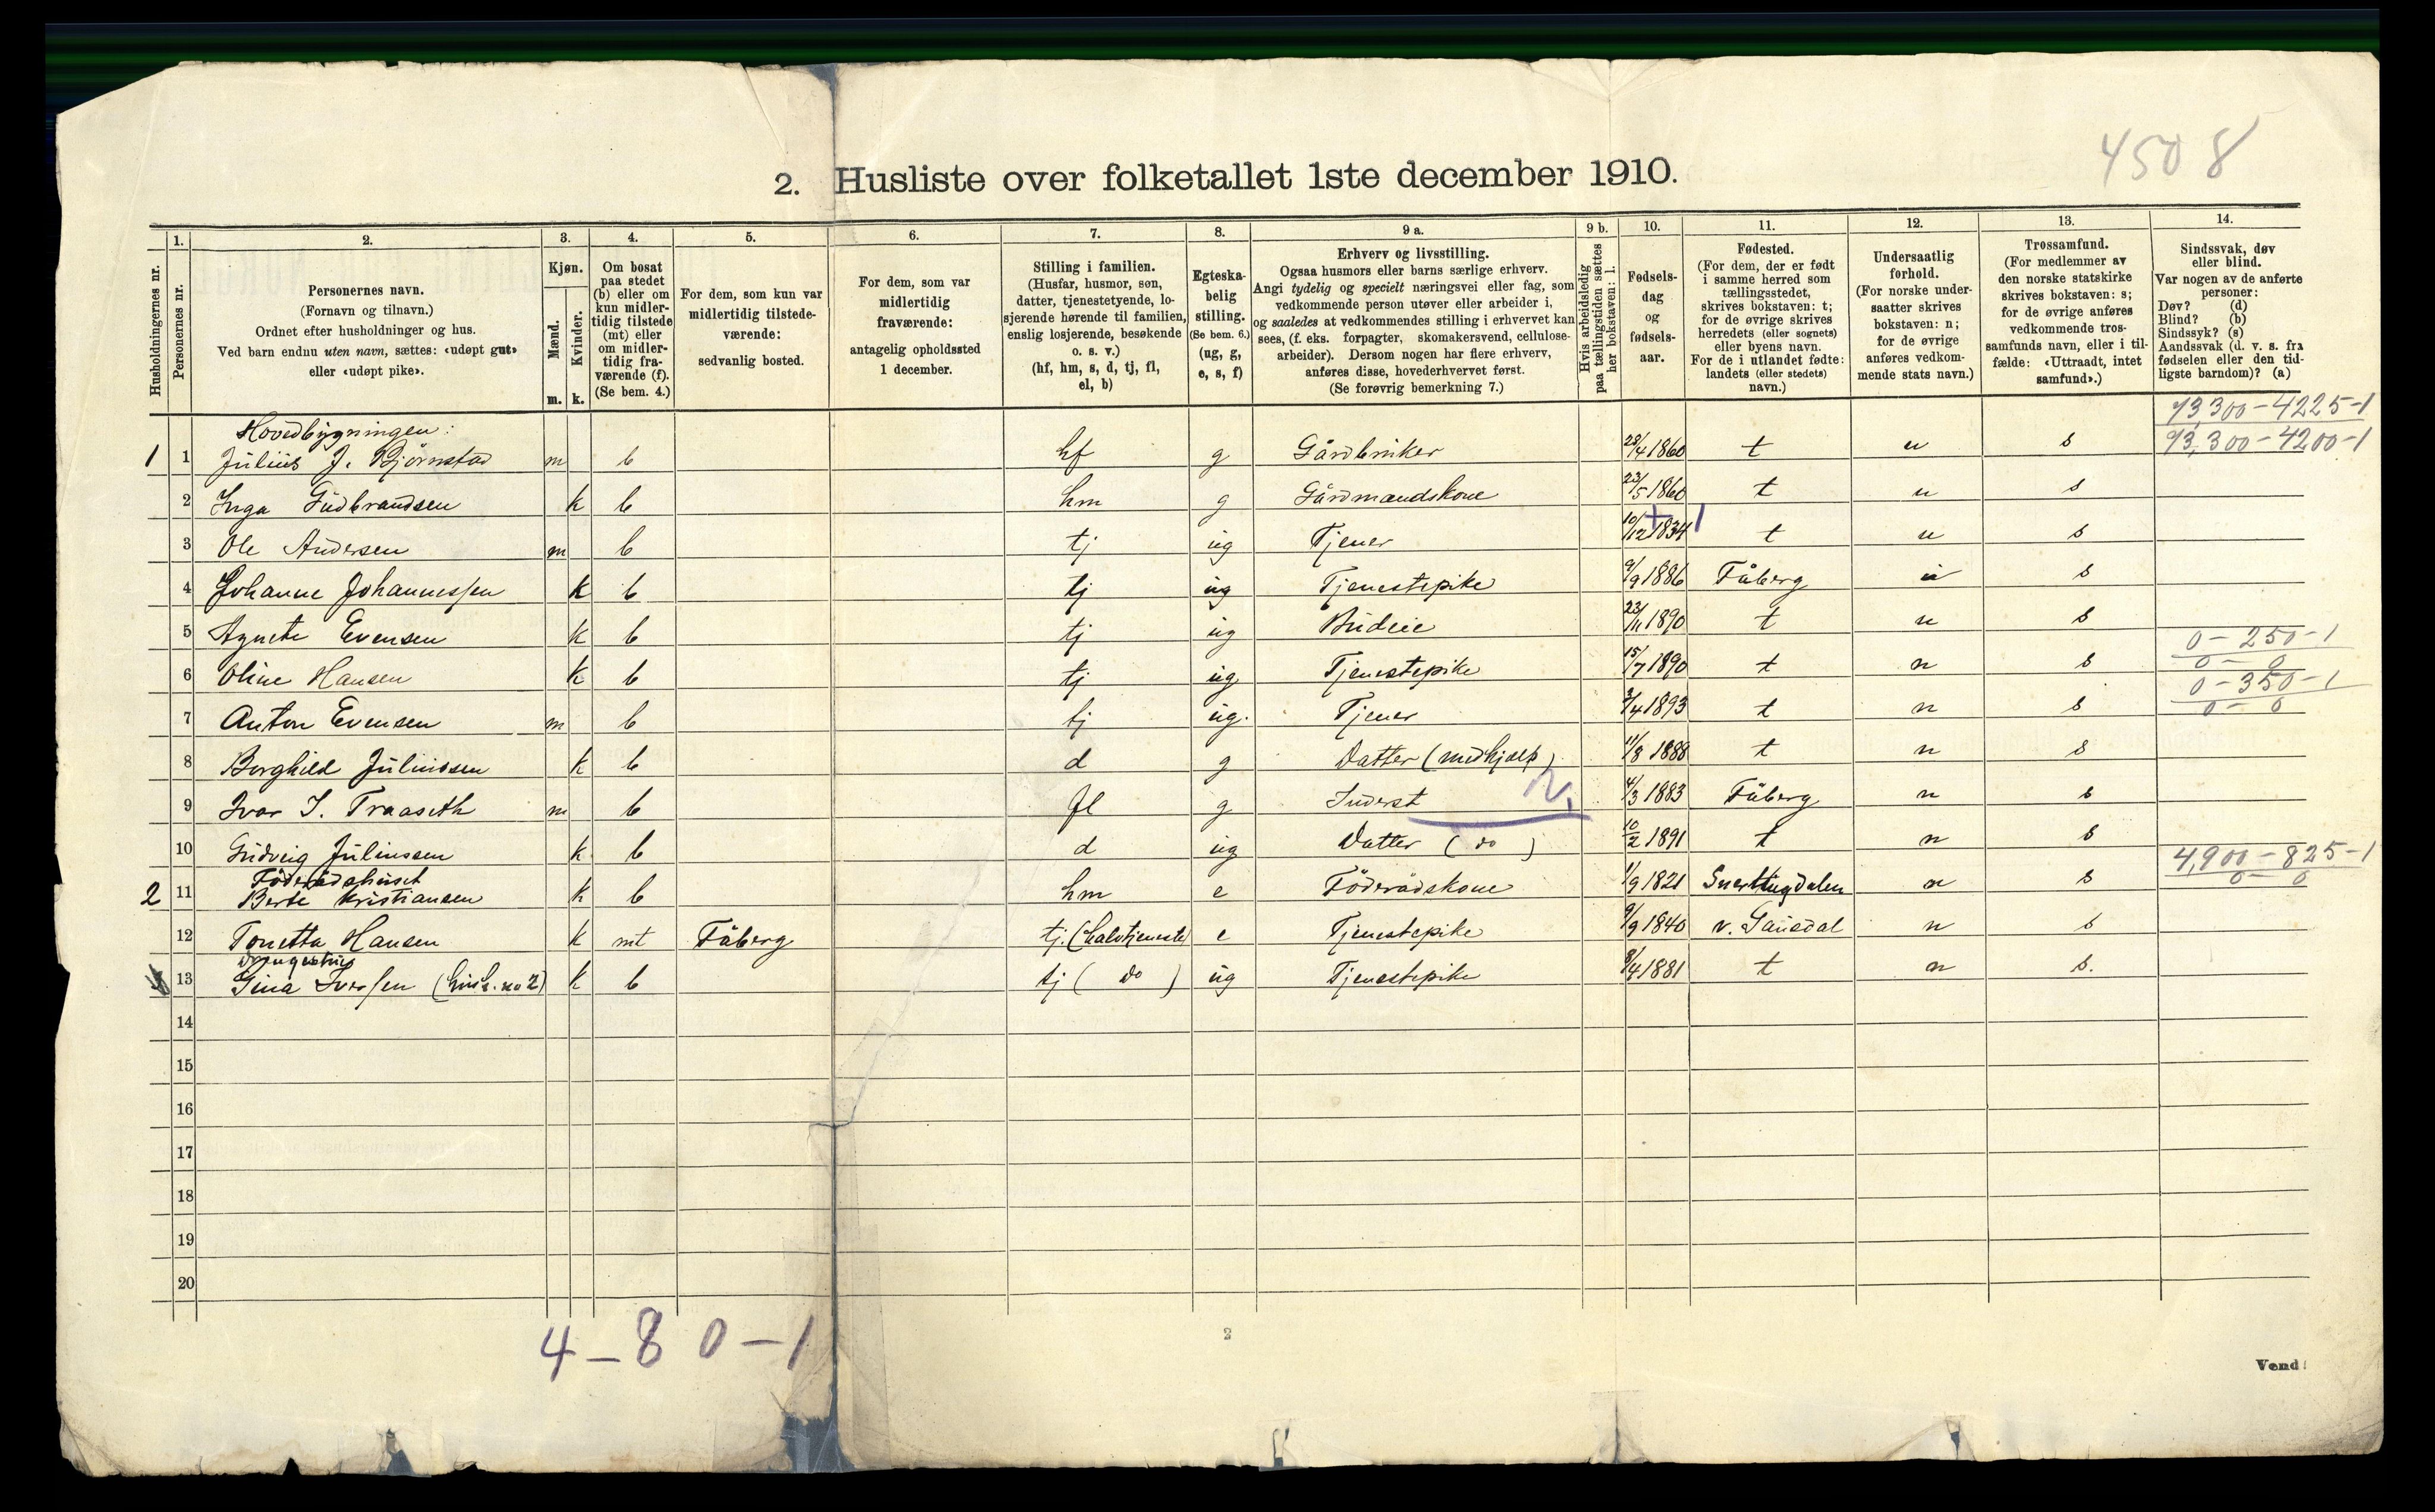 4508
2. Husliste over folketallet 1ste december 1910.
Husholdningernes nr.
1.
Personernes nr.
2.
Personernes navn.
(Fornavn og tilnavn.)
Ordnet efter husholdninger og hus.
Ved barn endnu uten navn, sættes: «udøpt gut»
eller «udøpt pike».
3.
Kjøn.
Mænd.
Kvinder.
m. k.
4.
Om bosat
paa stedet
(b) eller om
kun midler-
tidig tilstede
(mt) eller
om midler-
tidig fra-
værende (f).
(Se bem. 4.)
5.
For dem, som kun var
midlertidig tilstede-
værende:
sedvanlig bosted.
6.
For dem, som var
midlertidig
fraværende:
antagelig opholdssted
1 december.
7.
Stilling i familien.
(Husfar, husmor, søn,
datter, tjenestetyende, lo-
sjerende hørende til familien,
enslig losjerende, besøkende
o. s. v.)
(hf, hm, s, d, tj, fl,
el, b)
8.
Egteska-
belig
stilling.
(Se bem. 6.)
(ug, g,
e, s, f)
9 a.
Erhverv og livsstilling.
Ogsaa husmors eller barns særlige erhverv.
Angi tydelig og specielt næringsvei eller fag, som
vedkommende person utøver eller arbeider i,
og saaledes at vedkommendes stilling i erhvervet kan
sees, (f. eks. forpagter, skomakersvend, cellulose-
arbeider). Dersom nogen har flere erhverv,
anføres disse, hovederhvervet først.
(Se forøvrig bemerkning 7.)
9 b.
Hvis arbeidsledig
paa tællingstiden sættes
her bokstaven: l.
10.
Fødsels-
dag
og
fødsels-
aar.
11.
Fødested.
(For dem, der er født
i samme herred som
tællingsstedet,
skrives bokstaven: t;
for de øvrige skrives
herredets (eller sognets)
eller byens navn.
For de i utlandet fødte:
landets (eller stedets)
navn.)
12.
Undersaatlig
forhold.
(For norske under-
saatter skrives
bokstaven: n;
for de øvrige
anføres vedkom-
mende stats navn.)
13.
Trossamfund.
(For medlemmer av
den norske statskirke
skrives bokstaven: s;
for de øvrige anføres
vedkommende tros-
samfunds navn, eller i til-
fælde: «Uttraadt, intet
samfund».)
14.
Sindssvak, døv
eller blind.
Var nogen av de anførte
personer:
Døv? (d)
Blind? (b)
Sindssyk? (s)
Aandssvak (d. v. s. fra
fødselen eller den tid-
ligste barndom)? (a)
Hovedbygningen:
1 1 Julius J. Bjørnstad m b hf g Gårdbruker 28/4 1860 t n s
93,300-4200-1
2 Inga Gudbrandsen k b hm g Gårdmandskone 23/5 1860 t n s
3 Ole Andersen m b tj ug Tjener 10/12 1834 t n s
4 Johanne Johannessen k b tj ug Tjenestepike 9/9 1886 Fåberg n s
5 Agnete Evensen k b tj ug Budeie 23/11 1890 t n s
0-250-1
0-0
6 Oline Hansen k b tj ug Tjenestepike 15/7 1890 t n s
0-350-1
0-0
7 Anton Evensen m b tj ug. Tjener 3/4 1893 t n s
8 Borghild Juliussen k b d g Datter (medhjælp) 11/8 1888 t n s
9 Ivar I. Traaseth m b fl g Inderst 4/3 1883 Fåberg n s
10 Gudveig Juliussen k b d ug Datter (do) 10/2 1891 t n s
4,900-825-1
0-0
Föderådshuset
2 11 Berte Kristiansen k b hm e Föderådskone 1/9 1821 Snertingdalen n s
12 Tonetta Hansen k mt Fåberg tj. (halvtjeneste) e Tjenestepike 9/9 1840 v. Gausdal n s
13 Gina Iversen (hush. no 2) k b tj (do) ug Tjenestepike 8/4 1881 t n s.
14
15
16
17
18
19
20
4-8 0-1
2
Vend!